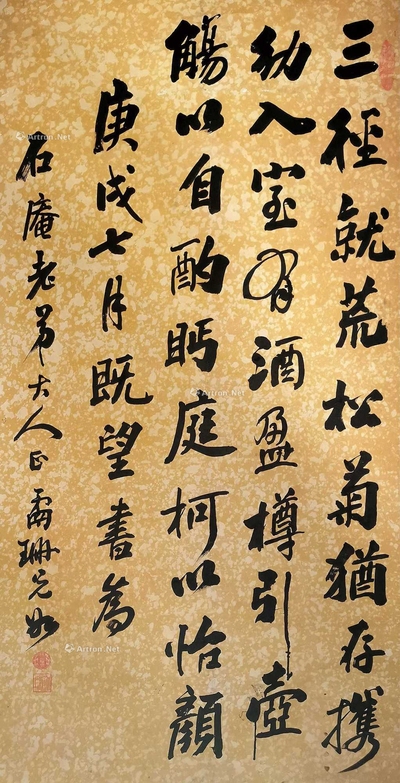 三徑就荒松菊猶存攜
幼入室有酒盈樽引壺
觴以自酌眄庭柯以怡顏
庚戌七月既望書為
石庵老弟大人正
Artron.Net
Artron.Net
Artron.Net